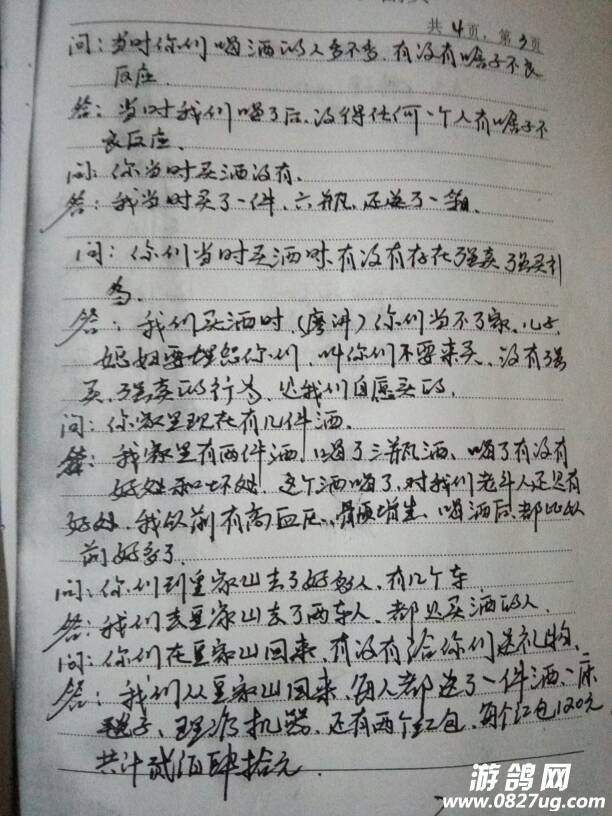 共4页，第3页
问：当时你们喝酒的人多不多，有没有啥子不良
反应．
答：当时我们喝了后，没得任何一个人有啥子不
良反应．
问：你当时买酒没有．
答：我当时买了一件，六瓶，还送了一箱．
问：你们当时买酒时，有没有存在强卖强买行
为．
答：我们买酒时，（廖洪）你们当不了家，儿子
媳妇要埋怨你们，叫你们不要来买，没有强
买，强卖的行为，是我们自愿买的，
问：你家里现在有几件酒．
答：我家里有两件酒，喝了三瓶酒，喝了有没有
好处和坏处，这个酒喝了，对我们老年人还是有
好处，我以前有高血压，骨质增生，喝酒后都比以
前好多了．
问：你们到皇家山去了好多人，有几个车
答：我们去皇家山去了两车人，都是买酒的人．
问：你们在皇家山回来，有没有给你们送礼物，
答：我们从皇家山回来，每人都送了一件酒、一床
毯子、理疗机器，还有两个红包，每个红包120元，
共计贰佰肆拾元．
游鸽网
www.0827ug.com